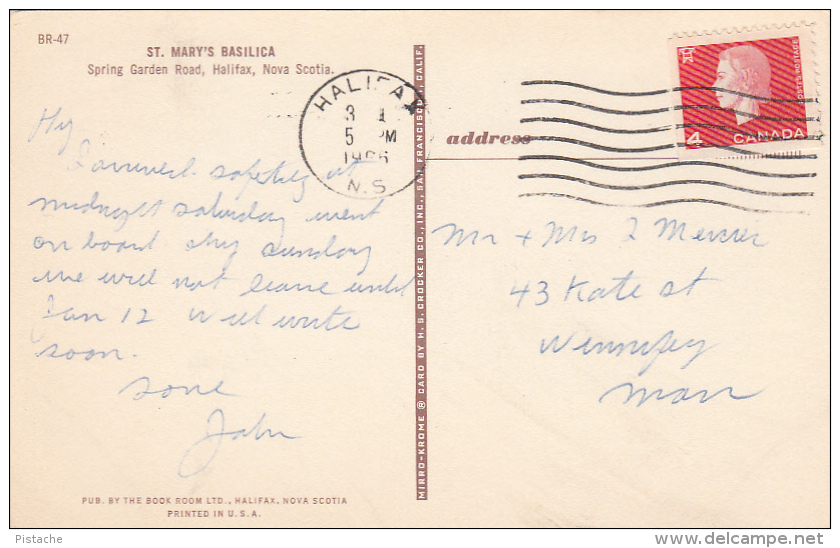 BR-47
ST. MARY'S BASILICA
Spring Garden Road, Halifax, Nova Scotia.
Hy
I arrived safetly at
midnight Saturday went
on board ship Sunday
we will not leave until
Jan 12 Will write
soon.
sone
John
PUB. BY THE BOOK ROOM LTD., HALIFAX, NOVA SCOTIA
PRINTED IN U.S.A.
MIRRO-KROME ® CARD BY H. S. CROCKER CO., INC., SAN FRANCISCO, CALIF.
HALIFAX
5 PM
1966
N.S.
address
POSTES POSTAGE
4 CANADA
Mr + Mrs Mercier
43 Kate St
Winnipeg
Man
Pistache
www.delcampe.net